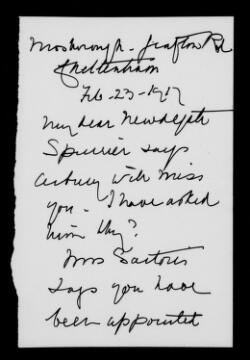 Mosborough - Grafton Rd
Cheltenham
Feb - 23 - 1917
My dear Newdegate
Spurrier says
Arbury will miss
you - I have asked
him Why?
Mrs Sartoris
says you have
been appointed